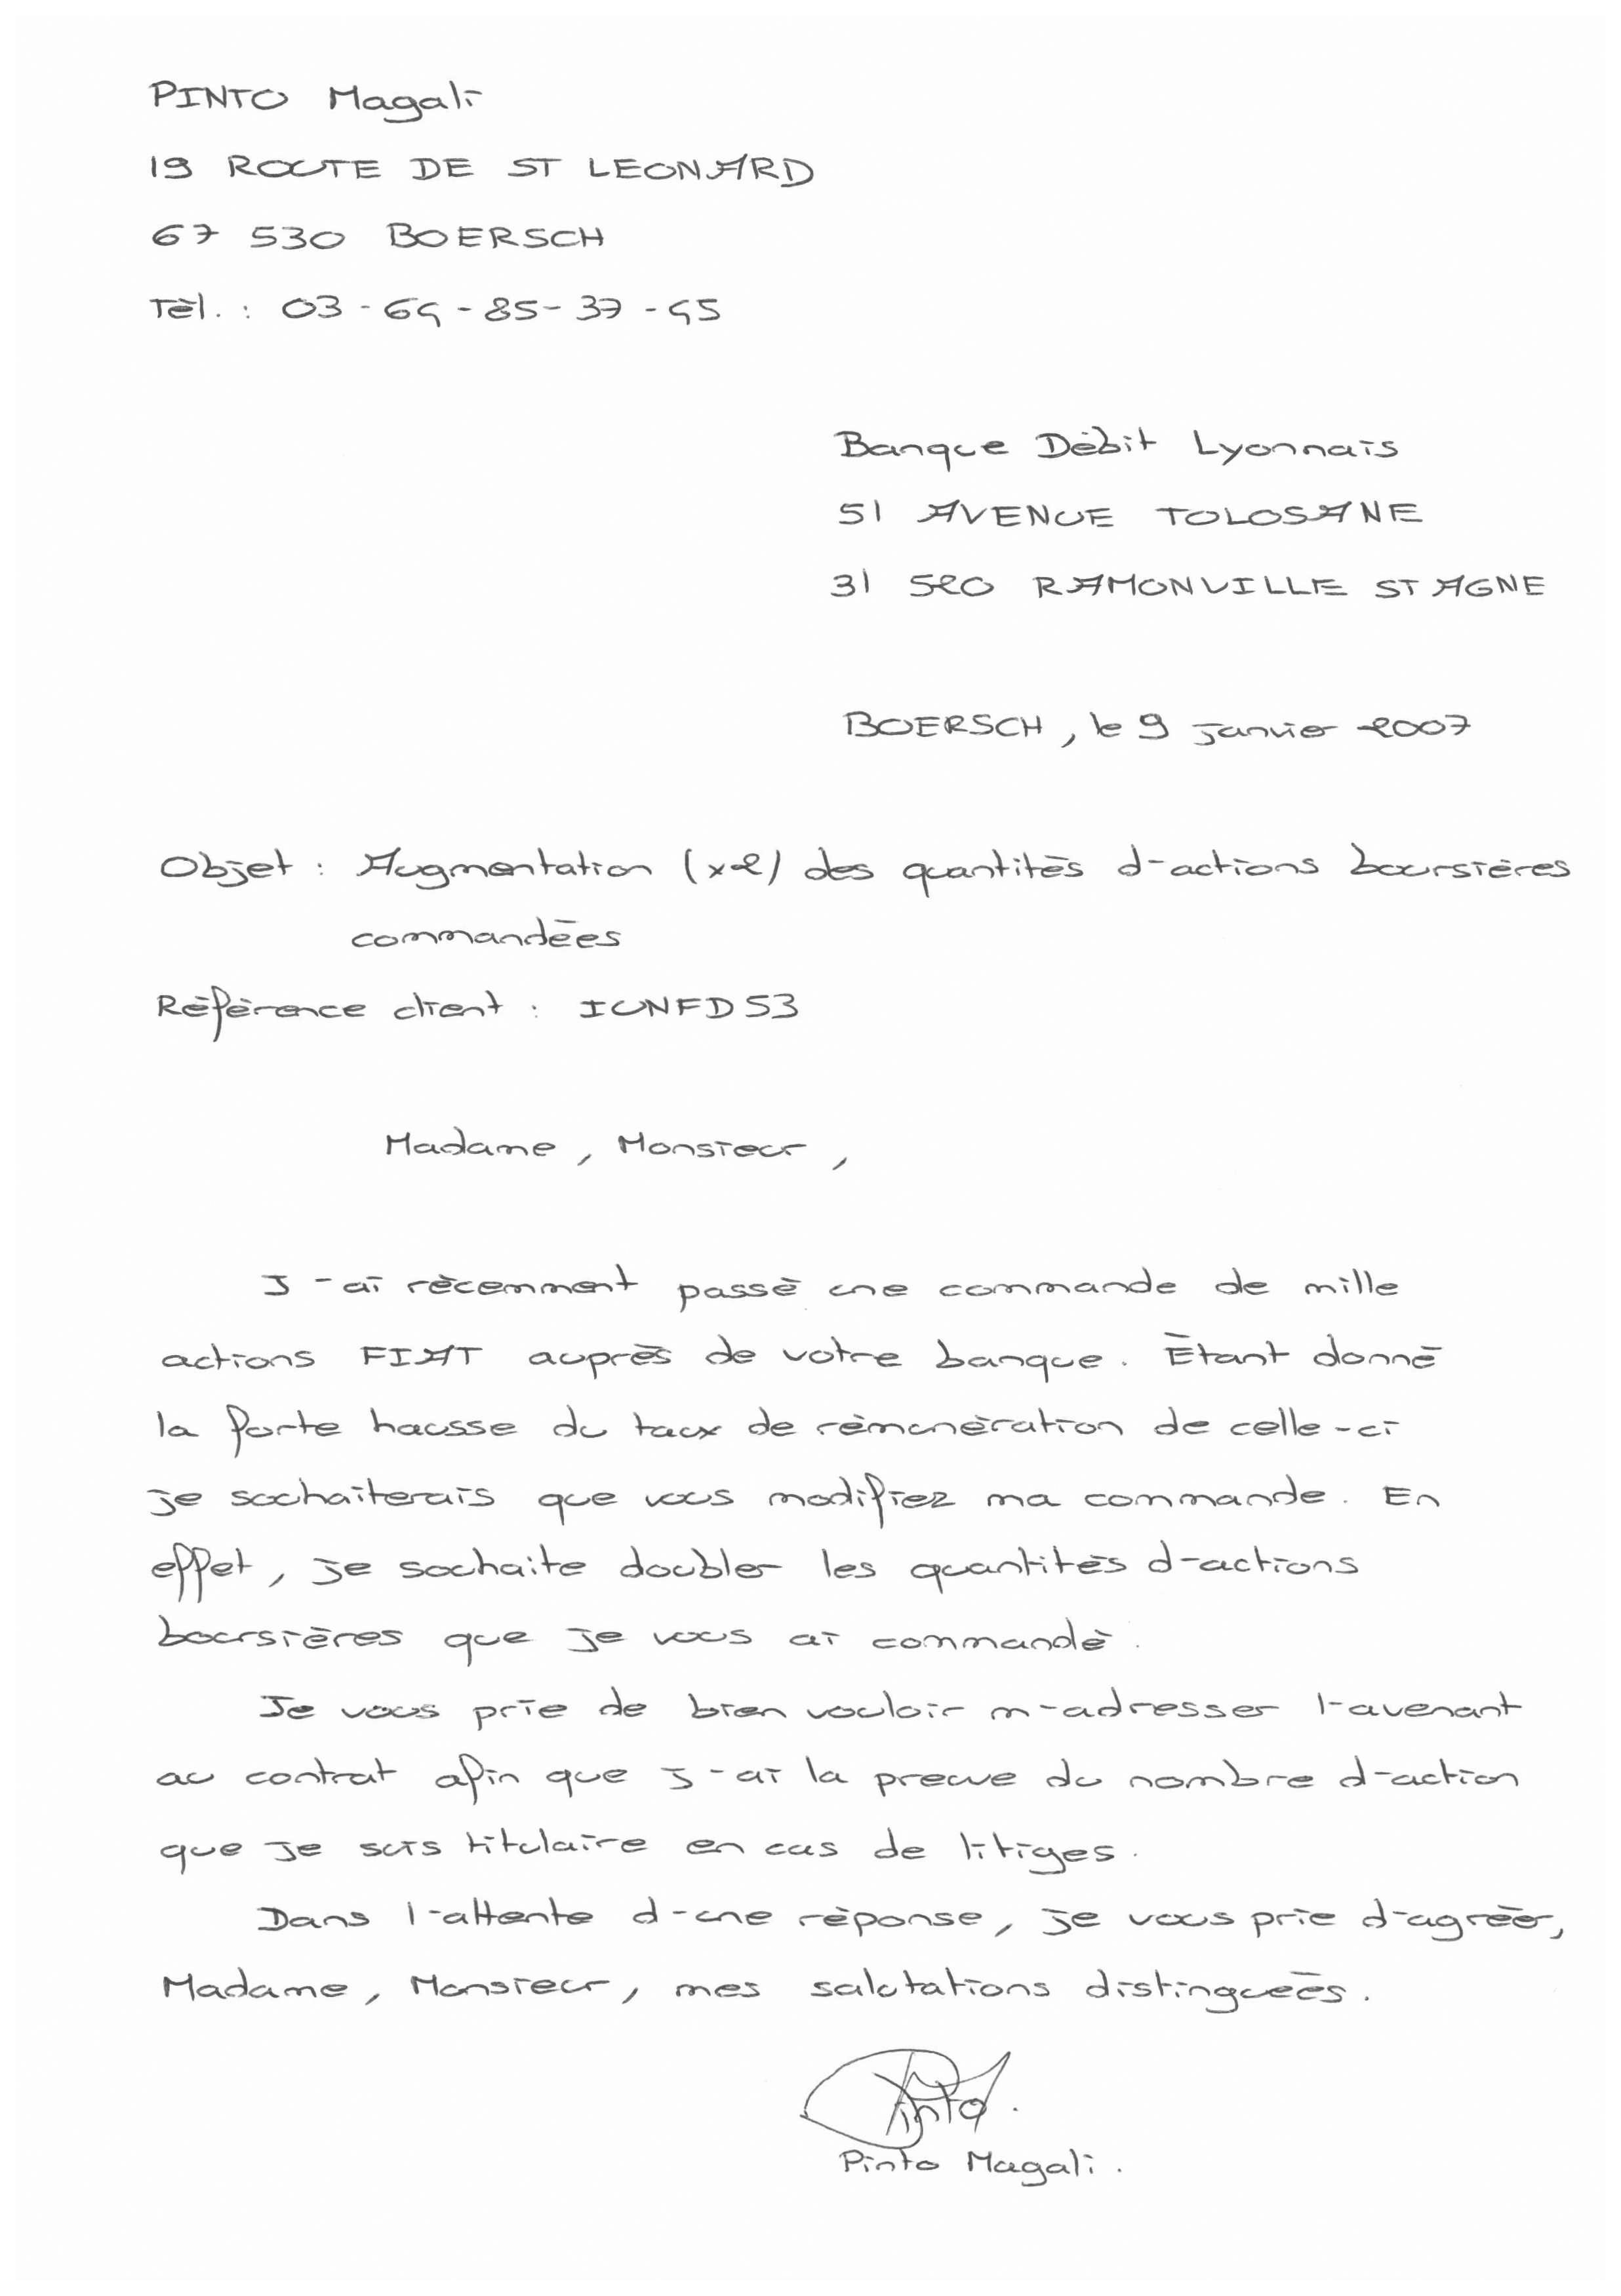 PINTO Magali
19 ROUTE DE ST LEONARD
67 530 BOERSCH
Tél. : 03-64-85-37-45
Banque Débit Lyonnais
51 AVENUE TOLOSANE
31 520 RAMONVILLE ST AGNE
BOERSCH, le 9 janvier 2007
Objet : Augmentation (x2) des quantités d'actions boursières
commandées
Référence client : IUNFD53
Madame, Monsieur,
J'ai récemment passé une commande de mille
actions FIAT auprès de votre banque. Étant donné
la forte hausse du taux de rémunération de celle-ci
je souhaiterais que vous modifiez ma commande. En
effet, je souhaite doubler les quantités d'actions
boursières que je vous ai commandé.
Je vous prie de bien vouloir m'adresser l'avenant
au contrat afin que j'ai la preuve du nombre d'action
que je suis titulaire en cas de litiges.
Dans l'attente d'une réponse, je vous prie d'agréer,
Madame, Monsieur, mes salutations distinguées.
Pinto.
Pinto Magali.